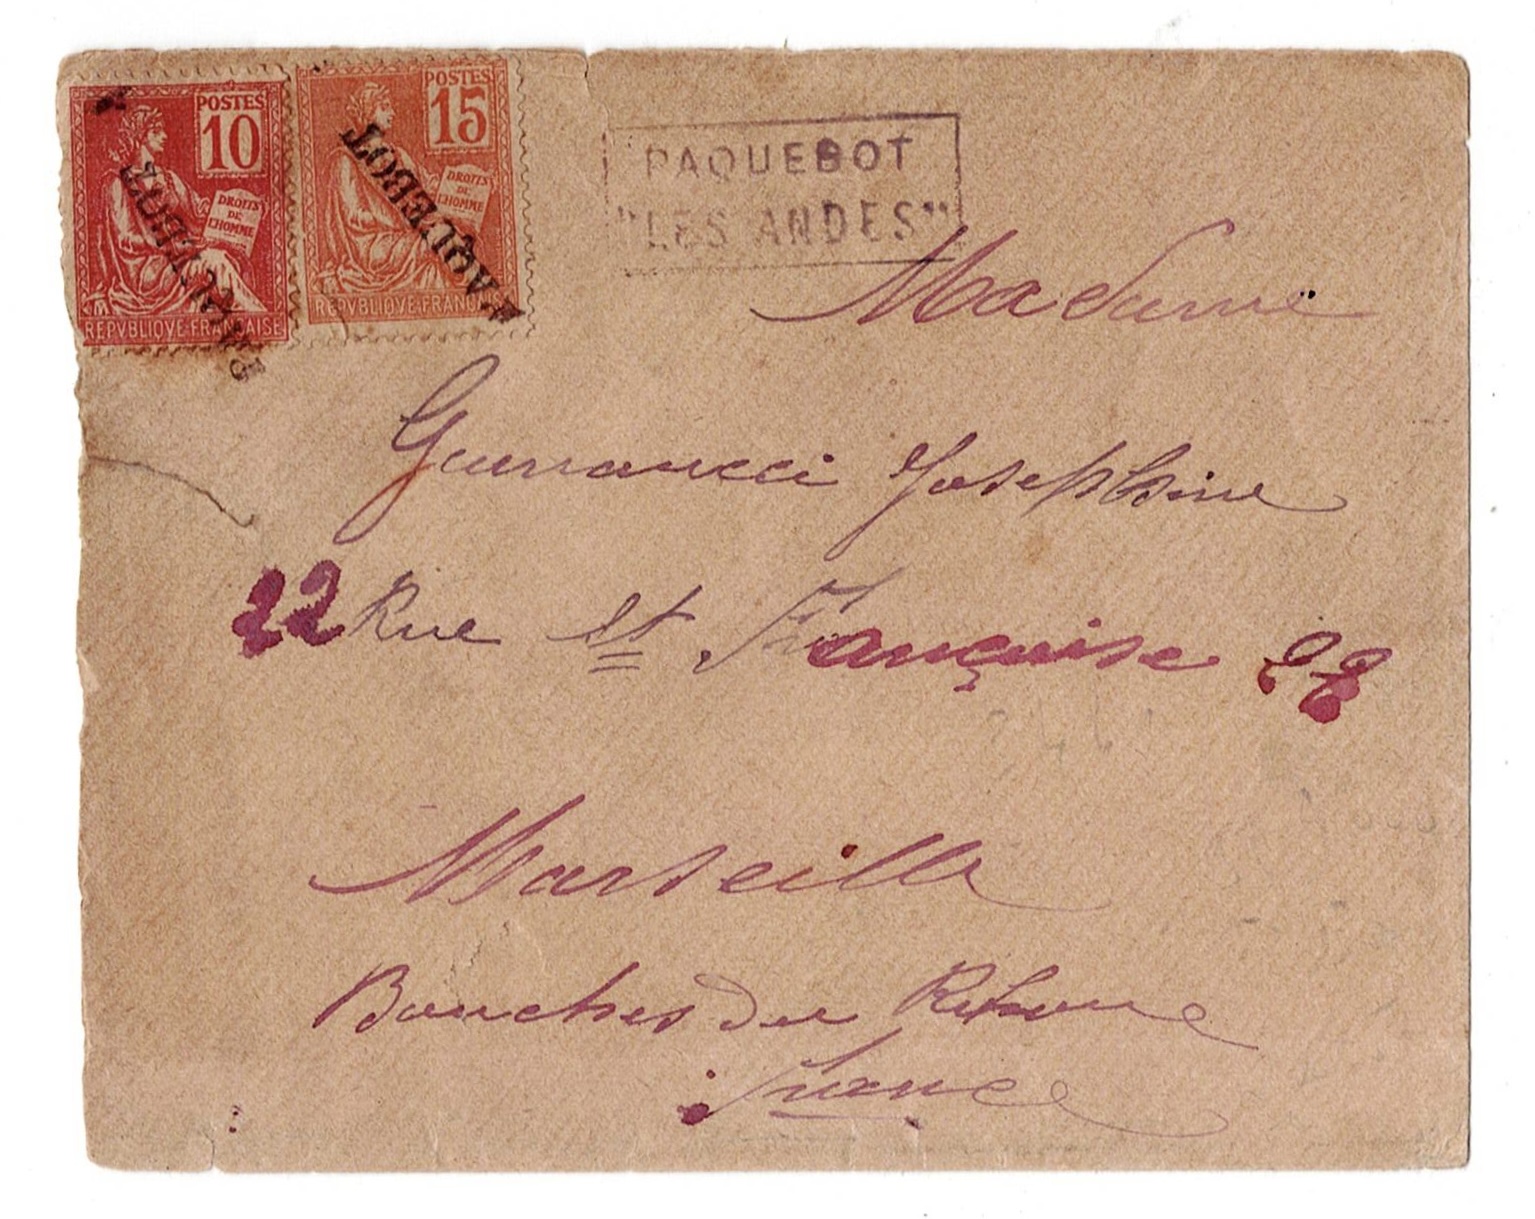 POSTES
10
DROITS
DE
L'HOMME
REPVBLIQVE FRANÇAISE
PAQUEBOT
POSTES
15
DROITS
DE
L'HOMME
REPVBLIQVE FRANÇAISE
PAQUEBOT
PAQUEBOT
"LES ANDES"
Madame
Josephine
22 Rue St Françoise 22
Marseille
Bouches du Rhone
France